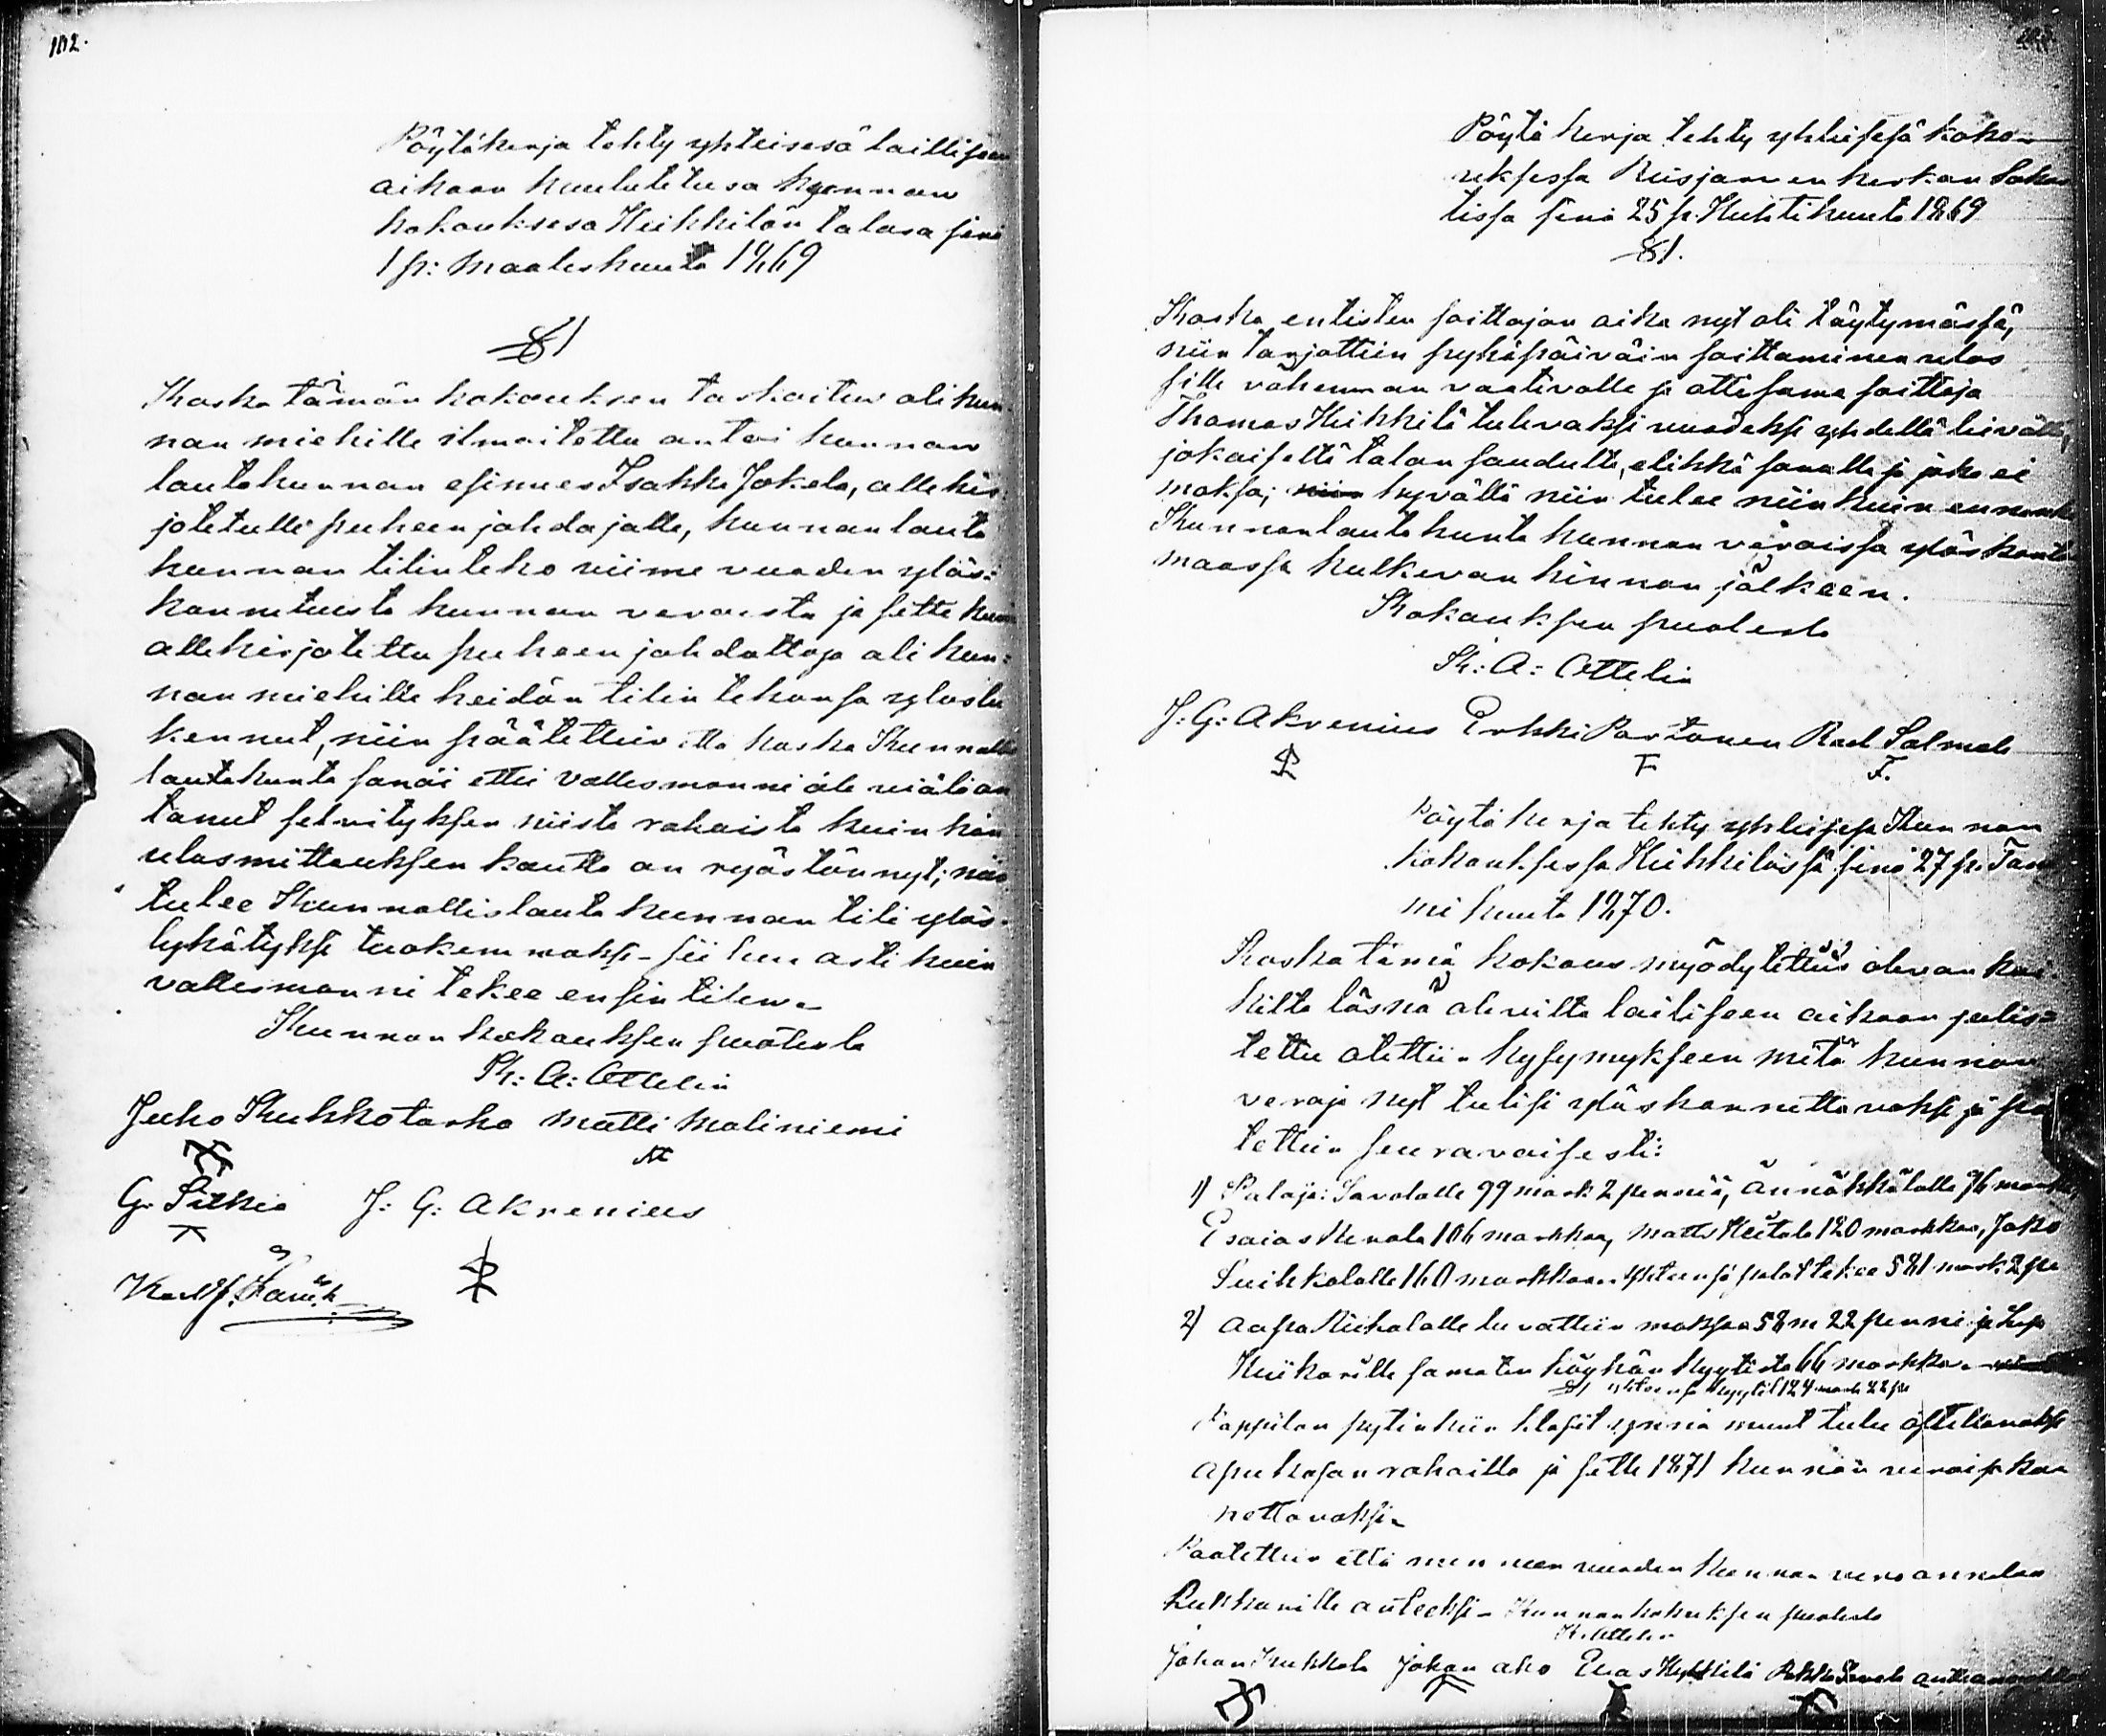 102.
Pöytäkerja tehty yhteisesä laillisean
aikaan kuulutetusa kunnan
kokouksesa Heikkilän talosa sinä
1 p: Maaliskuuta 1869
§1
Koska tämän kokouksen tarkoitus oli kun-
nan miehille ilmoitettu antoi kunnan
lautakunnan esimies Isakki Jokela, allekir-
jotetulle puheenjohdajalle, kunnanlauta
kunnan tilinteko viime vuoden ylös-
kannetuista kunnan veroista ja sitte kuin
allekirjotettu puheenjohdattaja oli kun-
nan miehille heidän tilin tekonsa ylöslu
kennut, niin päätettiin että koska Kunnallis
lautakunta sanoi ettei vallesmanni ole vielä an
tanut selvityksen niistä rahoista kuin hän
ulosmittauksen kautta on ryöstännyt; niin
tulee Kunnallislautakunnan tili ylös-
lykätyksi tuokemmaksi siihen asti kuin
vallesmanni tekee ensin tilin.
Kunnan kokouksen puolesta
K: A: Ottelin
Juho Kukkotarho Matti Maliniemi
G. Pitkä J: G: Akrenius
Karl f.
Pöytä kerja tehty yhteisesä koko-
uksessa Reisjarven kirkon Sakar
tissa sinä 25 p. Huhtikuuta 1869
§1.
Koska entisten soittajan aika nyt oli täytymässä,
niin tarjottiin pyhäpäiväin soittaminen ulos
sille vähemman vaativalle ja otti sama soittaja
Thomas Heikkilä tulevaksi vuodeksi yhdellä leivällä,
jokaiselta talon saudulta, elikkä savulta ja joka ei
maksa; niin hyvällä niin tulee niin kuin ennenki
Kunnanlautakunta kunnan veroissa ylöskanta
maassa kulkevan hinnan jälkeen.
Kokouksen puolesta
K: A: Ottelin
J: G: Akrenius Erkki Partanen Karl Salmela
Pöytä kerja tehty yhteisesä Kunnan
kokouksessa Heikkilässä sinä 27 p. Tam
mi kuuta 1870.
Koska tämä kokous myödytettiin olevan kai
kilta läsnä olevilta lailiseen aikaan julis-
tettu otettiin kysymykseen mitä kunnan
veroja nyt tulisi ylöskannettavaksi ja pää
tettiin seuravaisesti:
1) Palaja: Savolalle 99 mark 2 penniä, Ännäkkälälle 96 markka,
Esaias Kerola 106 markkaa, Matts Keitala 120 markkaa, Jako
Suihkolalle 160 markkaa. Yhteensä palat tekee 581 mark 2 pe
2) Aapa Kiikalalle luvattiin maksaa 58 m 22 penni ja
Kiikarille samaten köyhän kyytistä 66 markka.
§1 yhteensä kyytit 124 mark 22 pe
Pappilan pytinkiin klasit ynnä muut tulee
apukasan rahoilla ja sitte 1871 kunnan veroissa kan
nettavaksi.
Päätettiin että mennen vuoden kunnan vero annetaan
Lukkarille auteeksi. Kunnan kokuksen puolesta
K. Ottelin
Johan Kukkola Johan aho Elias Kykkilä